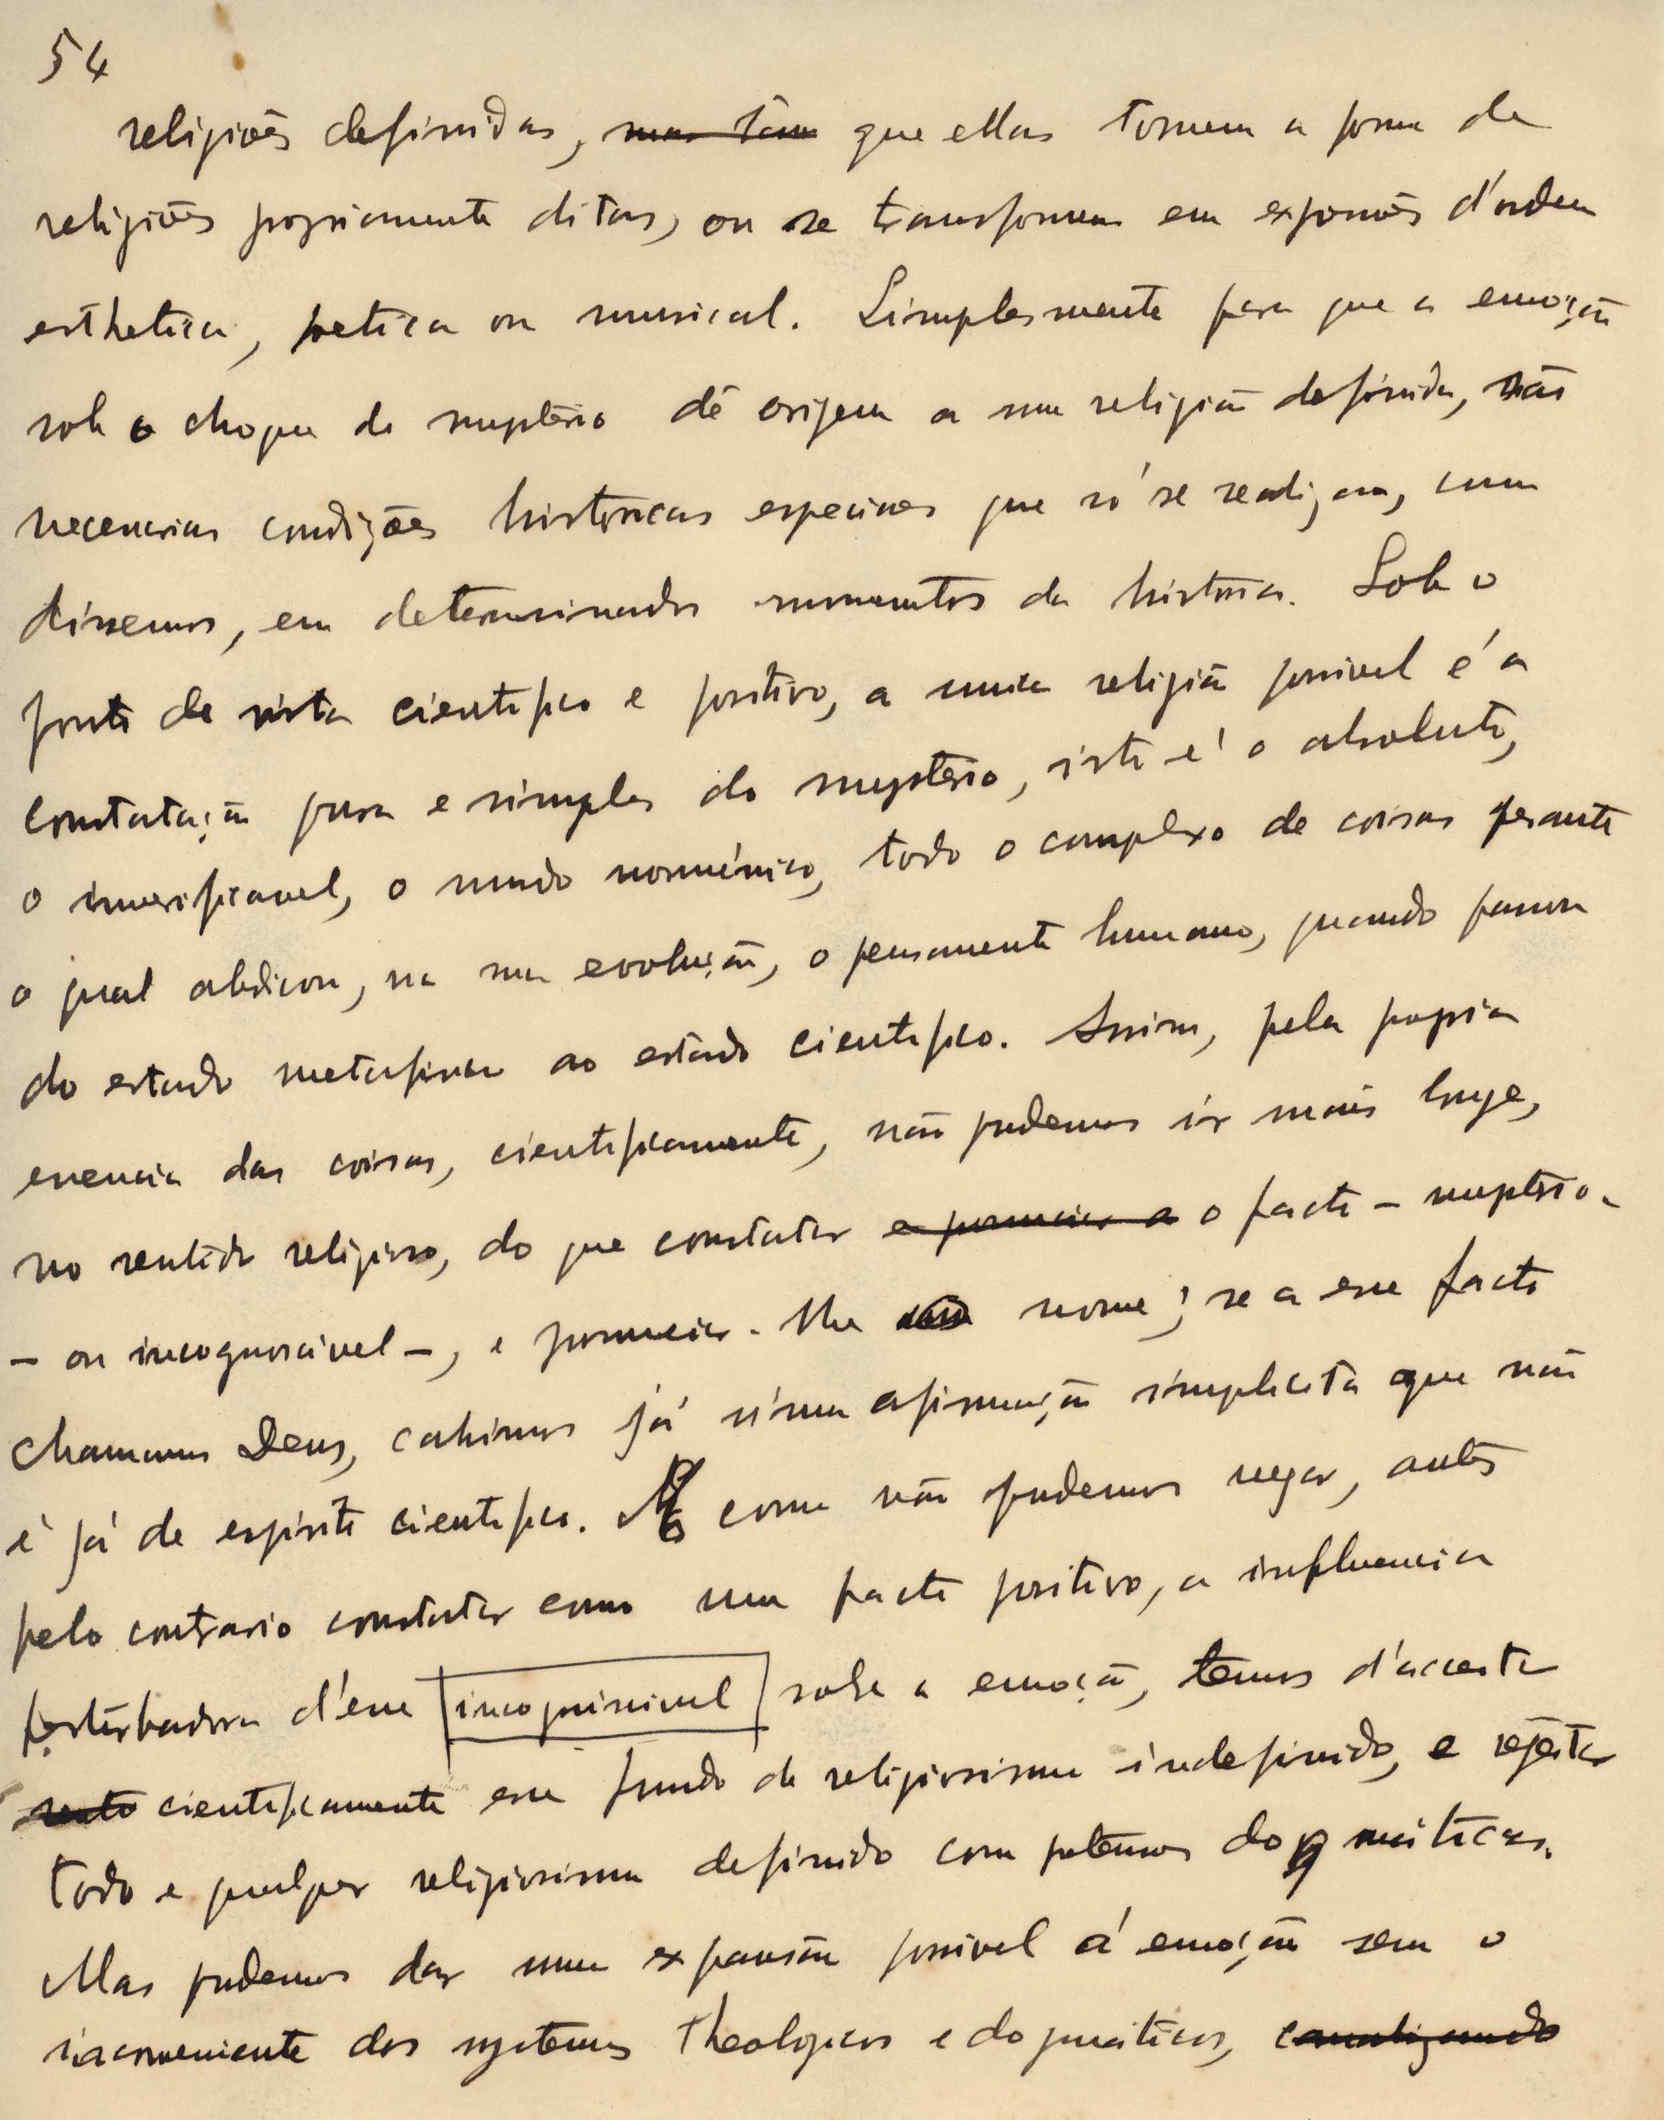 54
religiões definidas, mas tam que ellas tomem a forma de
religiões propriamente ditas, ou se transformem em expansões d'ordem
esthetica, poetica ou musical. Simplesmente para que a emoção
sob o choque do mysterio dê origem a uma religião definida, são
necessarias condições historicas especiaes que só se realizam, como
dissemos, em determinados momentos da historia. Sob o
ponto de vista cientifico e positivo, a unica religião possivel é a
constatação pura e simples do mysterio, isto é o absoluto,
o inverificavel, o mundo noumênico, todo o complexo de coisas perante
o qual abdicou, na sua evolução, o pensamento humano, quando passou
do estado metafisico ao estado cientifico. Assim, pela propria
essencia das coisas, cientificamente, não podemos ir mais longe,
no sentido religioso, do que constatar e pronunciar o o facto – mysterio –
– ou incognoscivel –, e pronunciar-lhe nome; se a esse facto
chamamos Deus, cahimos já n'uma afirmação simplicista que não
é já de espirito cientifico. Mas como não podemos negar, antes
pelo contrario constatar como um facto positivo, a influencia
perturbadora d'esse incognoscivel sobre a emoção, temos d'acceitar
cientificamente esse fundo de religiosismo indefinido, e rejeitar
todo e qualquer religiosismo definido com dogmáticas.
Mas podemos dar uma expansão possivel á emoção sem o
inconveniente dos systemas theologicos e dogmáticos, canalizando